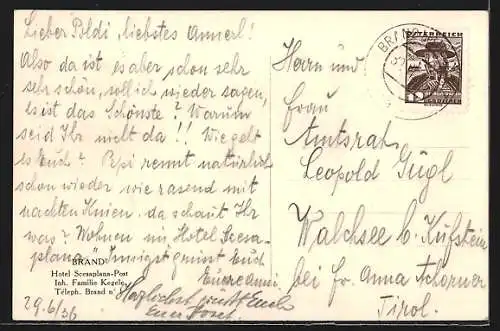 Lieber Poldi, liebstes Annerl!
Also da ist es aber schon sehr
sehr schön, soll ich wieder sagen,
es ist das Schönste? Warum
seid Ihr nicht da!! Wie geht
es Euch? Pepi rennt natürlich
schon wieder wie rasend mit
nackten Knien. da schaut Ihr
was? Wohnen im Hotel Scesa-
plana. Innigst grüsst Euch
Eure Anni.
Herzlichst grüsst Euch
Euer Josef.
29.6/36
BRAND
Hotel Scesaplana-Post
Inh. Familie Kegele
Teleph. Brand n° 1
ÖSTERREICH
12
BRAN
Herrn und
Frau
Amtsrat
Leopold Gügl
Walchsee b. Kufstein
bei Fr. Anna Achorner
Tirol.